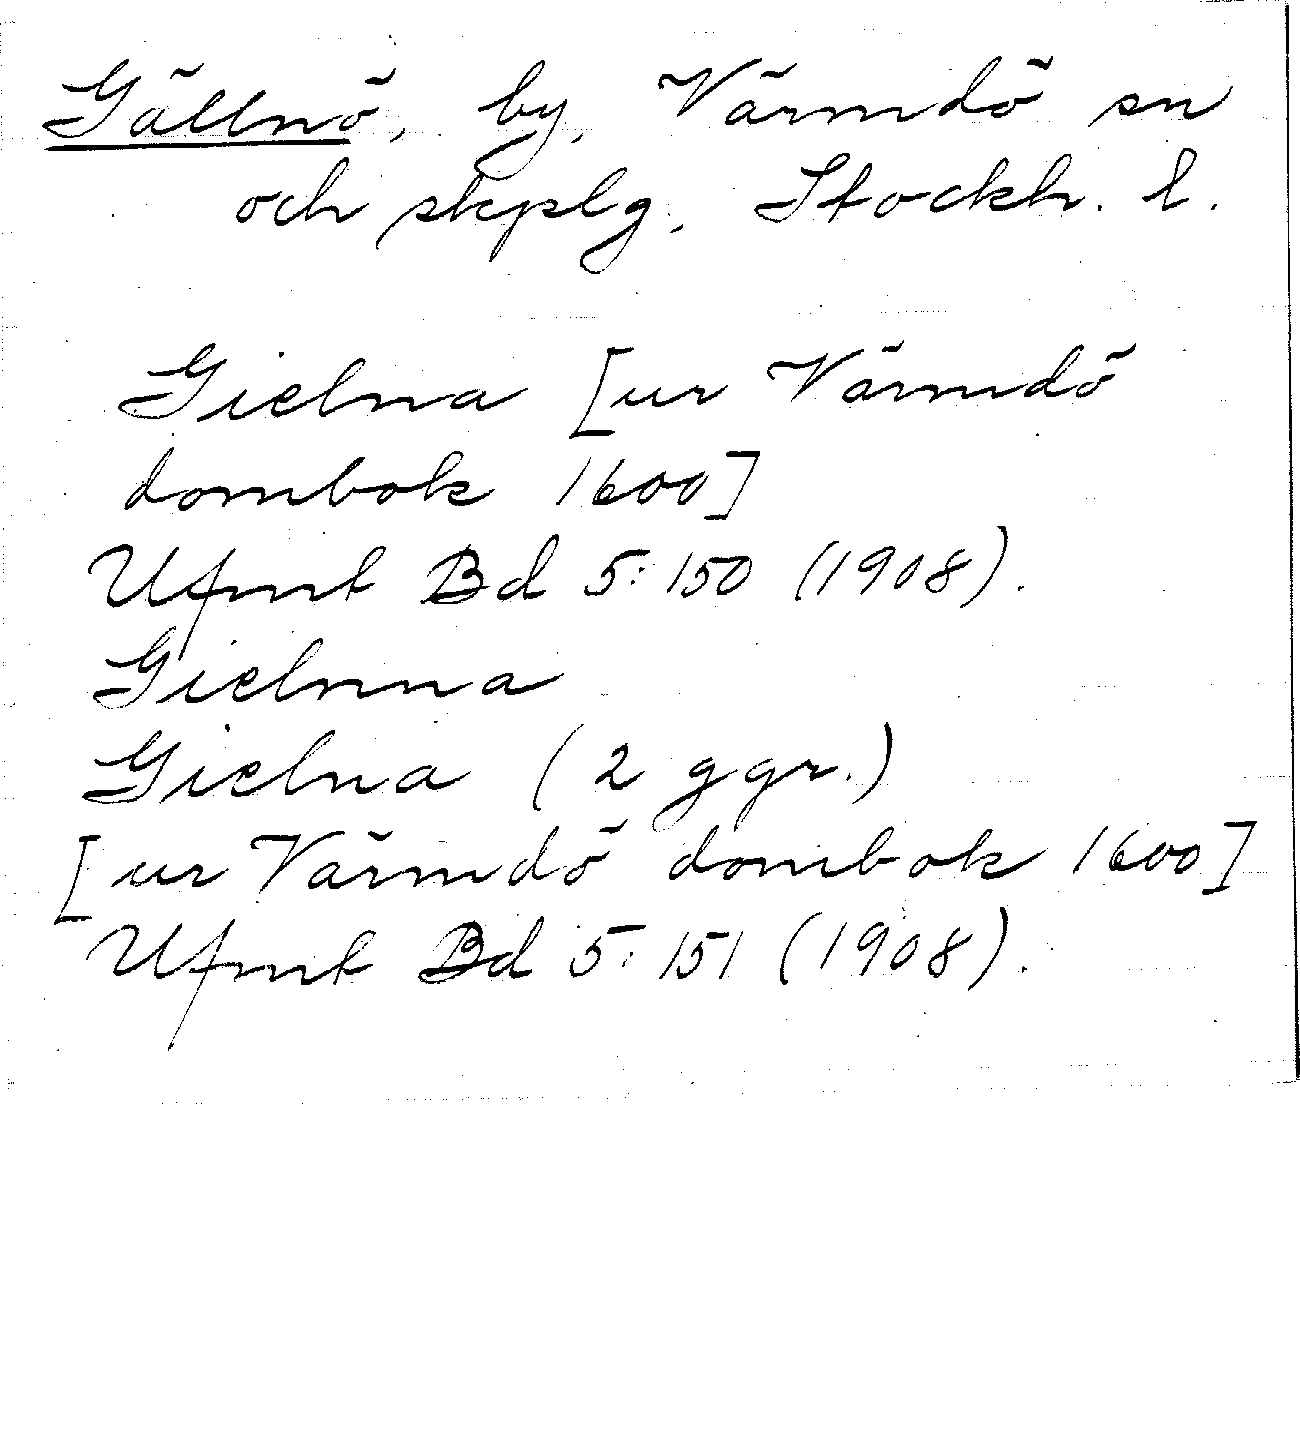 Gällnö, by, Värmdö sn
och skplg, Stockh. l.
Gielna [ur Värmdö
dombok 1600]
Ufmt Bd 5:150 (1908).
Gielnna
Gielna (2 ggr.)
[ur Värmdö dombok 1600]
Ufmt Bd 5:151 (1908).